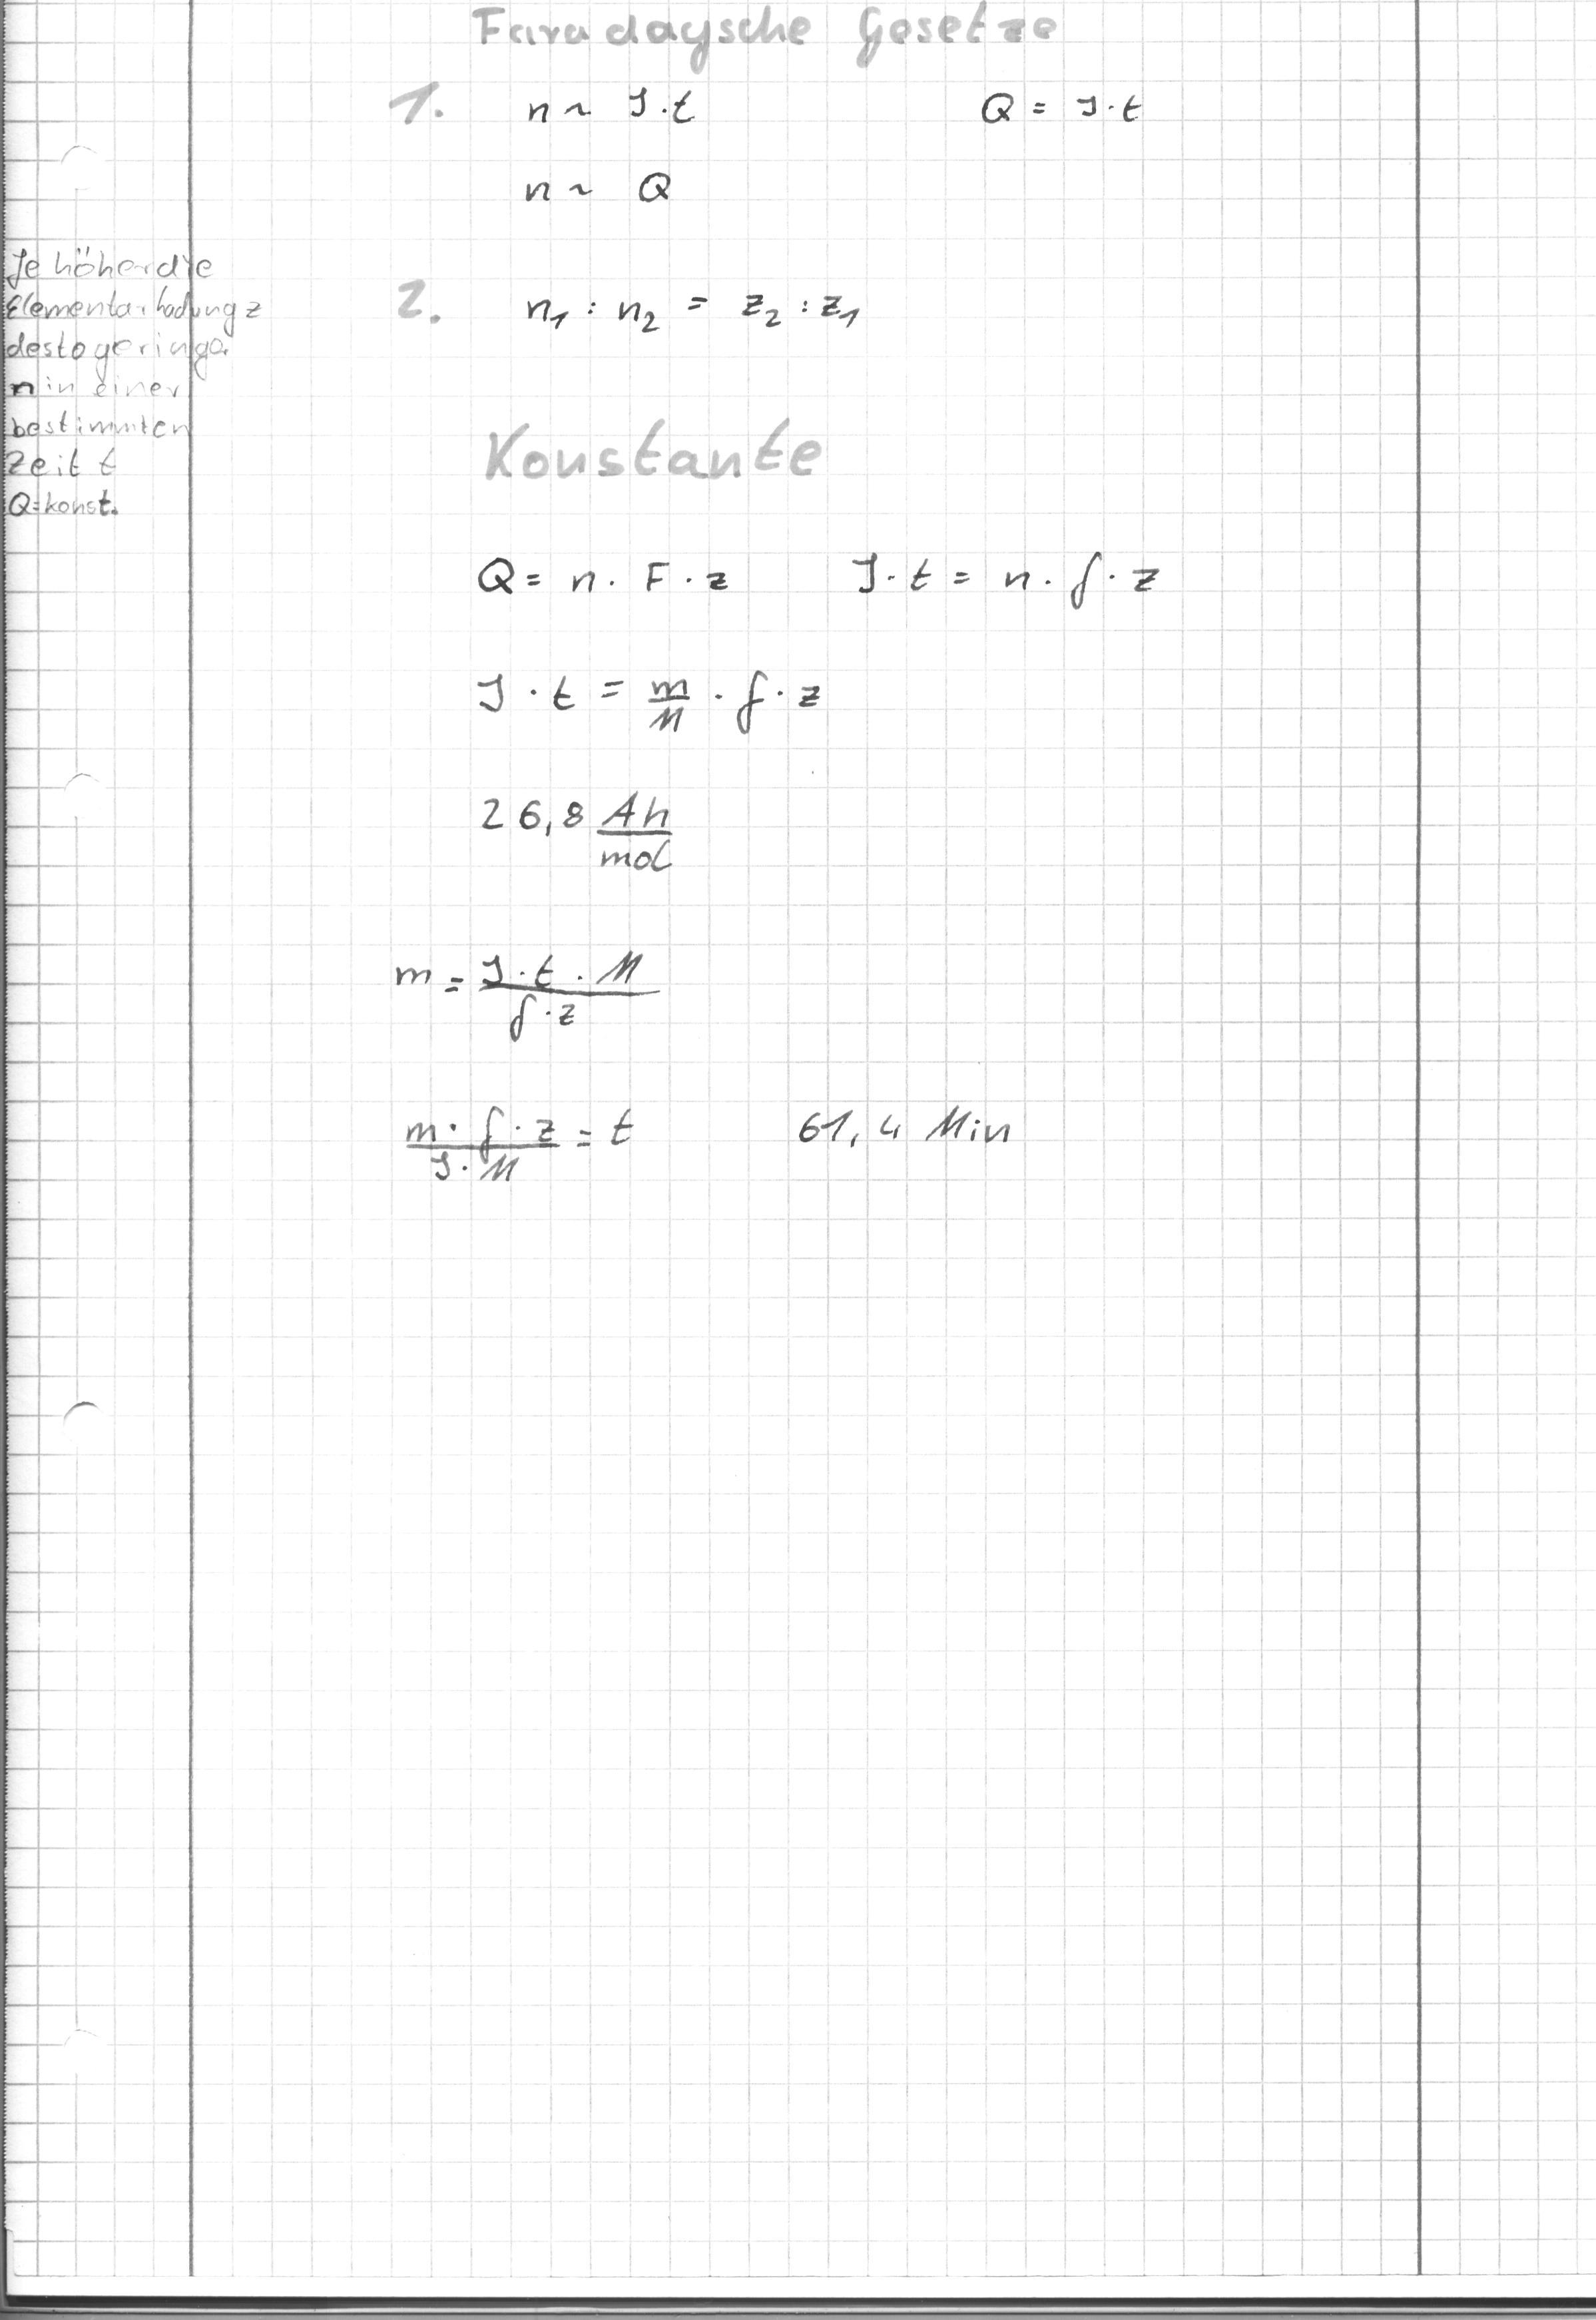 Faradaysche Gesetze
1. n ~ I·t Q = I·t
n ~ Q
Je höher die
Elementarladung z
desto geringer
n in einer
bestimmten
Zeit t
Q=konst.
2. n₁ : n₂ = z₂ : z₁
Konstante
Q = n · F · z I · t = n · f · z
I · t = m/M · f · z
26,8 Ah/mol
m = I·t·M / f·z
m·f·z / I·M = t 61,4 Min